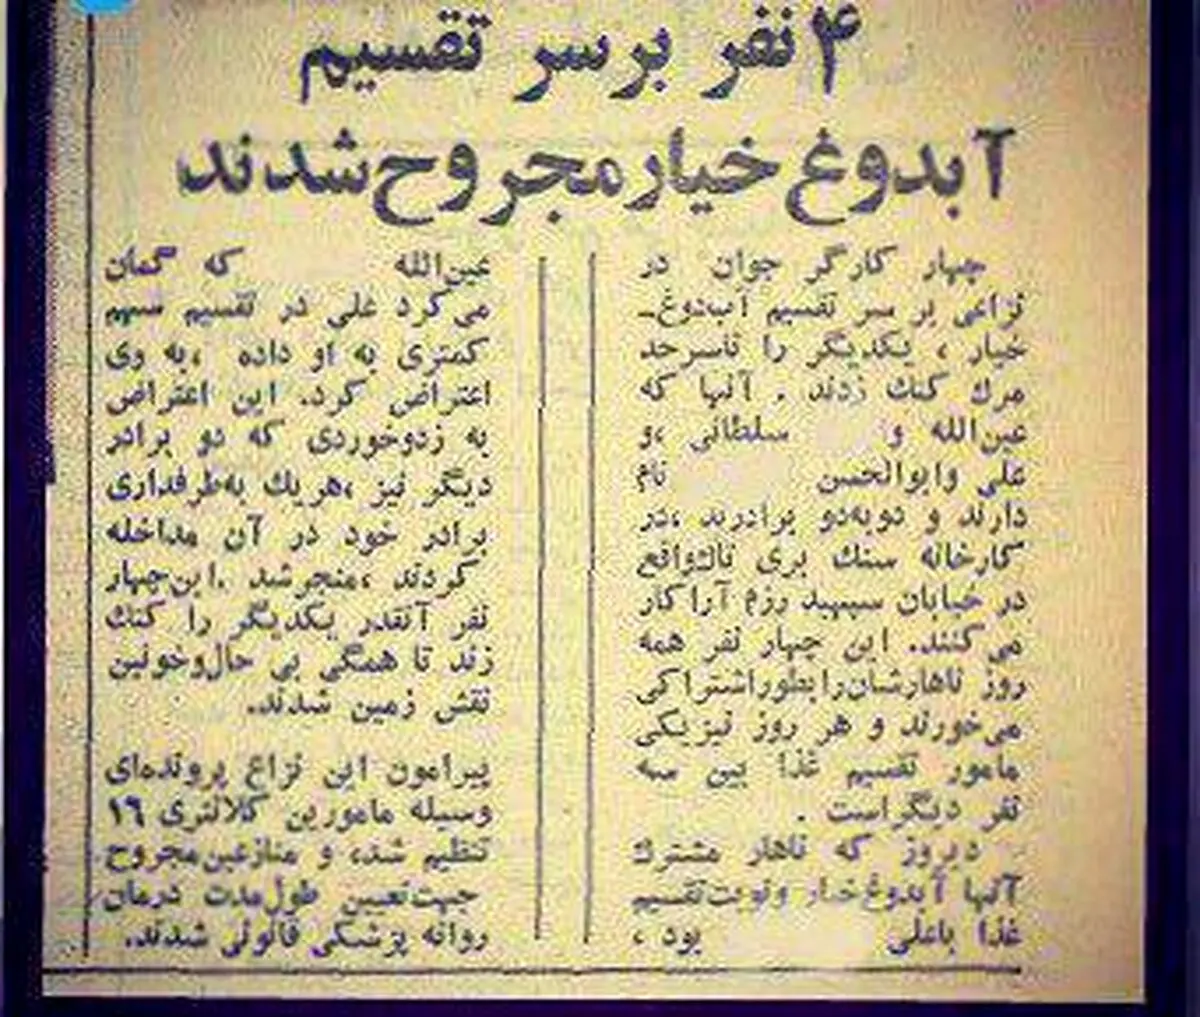 ۴ نفر بر سر تقسیم
آبدوغ خیار مجروح شدند
چهار کارگر جوان در
نزاعی بر سر تقسیم آب‌دوغ‌ـ
خیار ، یکدیگر را تاسرحد
مرك كتك زدند . آنها که
عین‌الله و سلطانی ،و
علی وابوالحسن نام
دارند و دوبه‌دو برادرند ،در
کارخانه سنك بری تالئواقع
در خیابان سپهبد رزم آرا کار
می‌کنند. این چهار نفر همه
روز ناهارشان‌را بطوراشتراکی
می‌خورند و هر روز نیز یکی
مامور تقسیم غذا بین سه
نفر دیگر است .
دیروز که ناهار مشترك
آنها آبدوغ‌خیار ونوبت‌تقسیم
غذا باعلی بود ،
عین‌الله که گمان
می‌کرد علی در تقسیم سهم
کمتری به او داده ،به وی
اعتراض کرد. این اعتراض
به زدوخوردی که دو برادر
دیگر نیز ،هریك به‌طرفداری
برادر خود در آن مداخله
کردند ،منجرشد .این‌چهار
نفر آنقدر یکدیگر را كتك
زند تا همگی بی حال‌وخونین
نقش زمین شدند.
پیرامون این نزاع پرونده‌ای
وسیله مامورین کلانتری ۱۶
تنظیم شد، و منازعین‌مجروح
جهت‌تعیین طول‌مدت درمان
روانه پزشکی قانونی شدند.